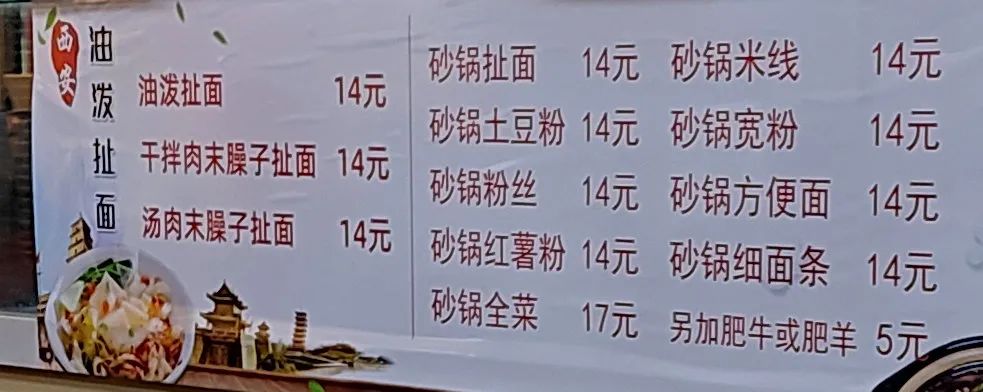 西安
油泼扯面
油泼扯面 14元
干拌肉末臊子扯面 14元
汤肉末臊子扯面 14元
砂锅扯面 14元
砂锅土豆粉 14元
砂锅粉丝 14元
砂锅红薯粉 14元
砂锅全菜 17元
砂锅米线 14元
砂锅宽粉 14元
砂锅方便面 14元
砂锅细面条 14元
另加肥牛或肥羊 5元